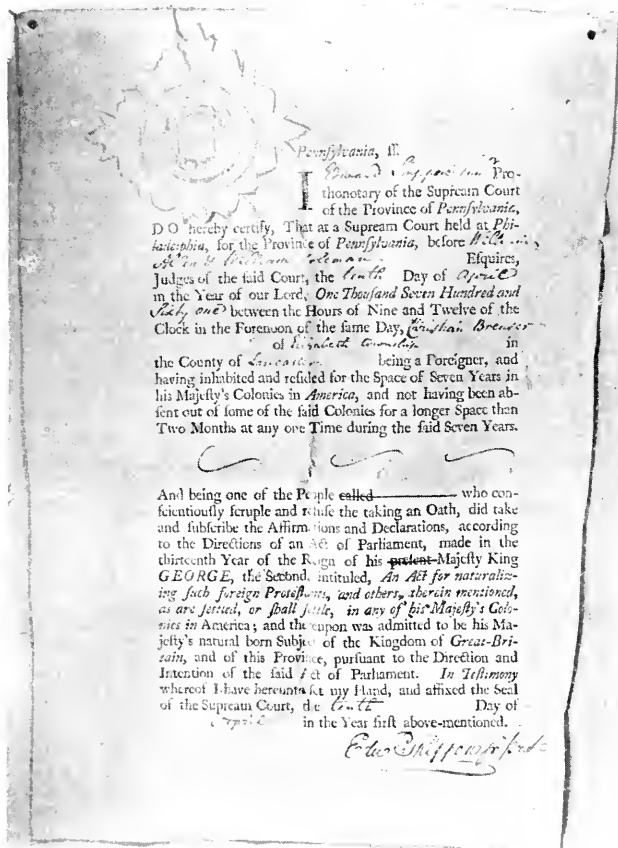 Pennsylvania, ſſ.
I Edward Shippen Pro-
thonotary of the Supream Court
of the Province of Pennſylvania,
DO hereby certify, That at a Supream Court held at Phi-
ladelphia, for the Province of Pennſylvania, before
William Coleman Eſquires,
Judges of the ſaid Court, the tenth Day of April
in the Year of our Lord, One Thouſand Seven Hundred and
Sixty one between the Hours of Nine and Twelve of the
Clock in the Forenoon of the ſame Day, Chriſtian Breuſer
of Elizabeth township in
the County of Lancaster being a Foreigner, and
having inhabited and reſided for the Space of Seven Years in
his Majeſty's Colonies in America, and not having been ab-
ſent out of ſome of the ſaid Colonies for a longer Space than
Two Months at any one Time during the ſaid Seven Years.
And being one of the People called who con-
ſcientiouſly ſcruple and refuſe the taking an Oath, did take
and ſubſcribe the Affirmations and Declarations, according
to the Directions of an Act of Parliament, made in the
thirteenth Year of the Reign of his preſent Majeſty King
GEORGE, the Second, intituled, An Act for naturaliz-
ing ſuch foreign Proteſtants, and others, therein mentioned,
as are ſettled, or ſhall ſettle, in any of his Majeſty's Colo-
nies in America; and thereupon was admitted to be his Ma-
jeſty's natural born Subject of the Kingdom of Great-Bri-
tain, and of this Province, purſuant to the Direction and
Intention of the ſaid Act of Parliament. In Teſtimony
whereof I have hereunto ſet my Hand, and affixed the Seal
of the Supream Court, the tenth Day of
April in the Year firſt above-mentioned.
Edwd Shippen